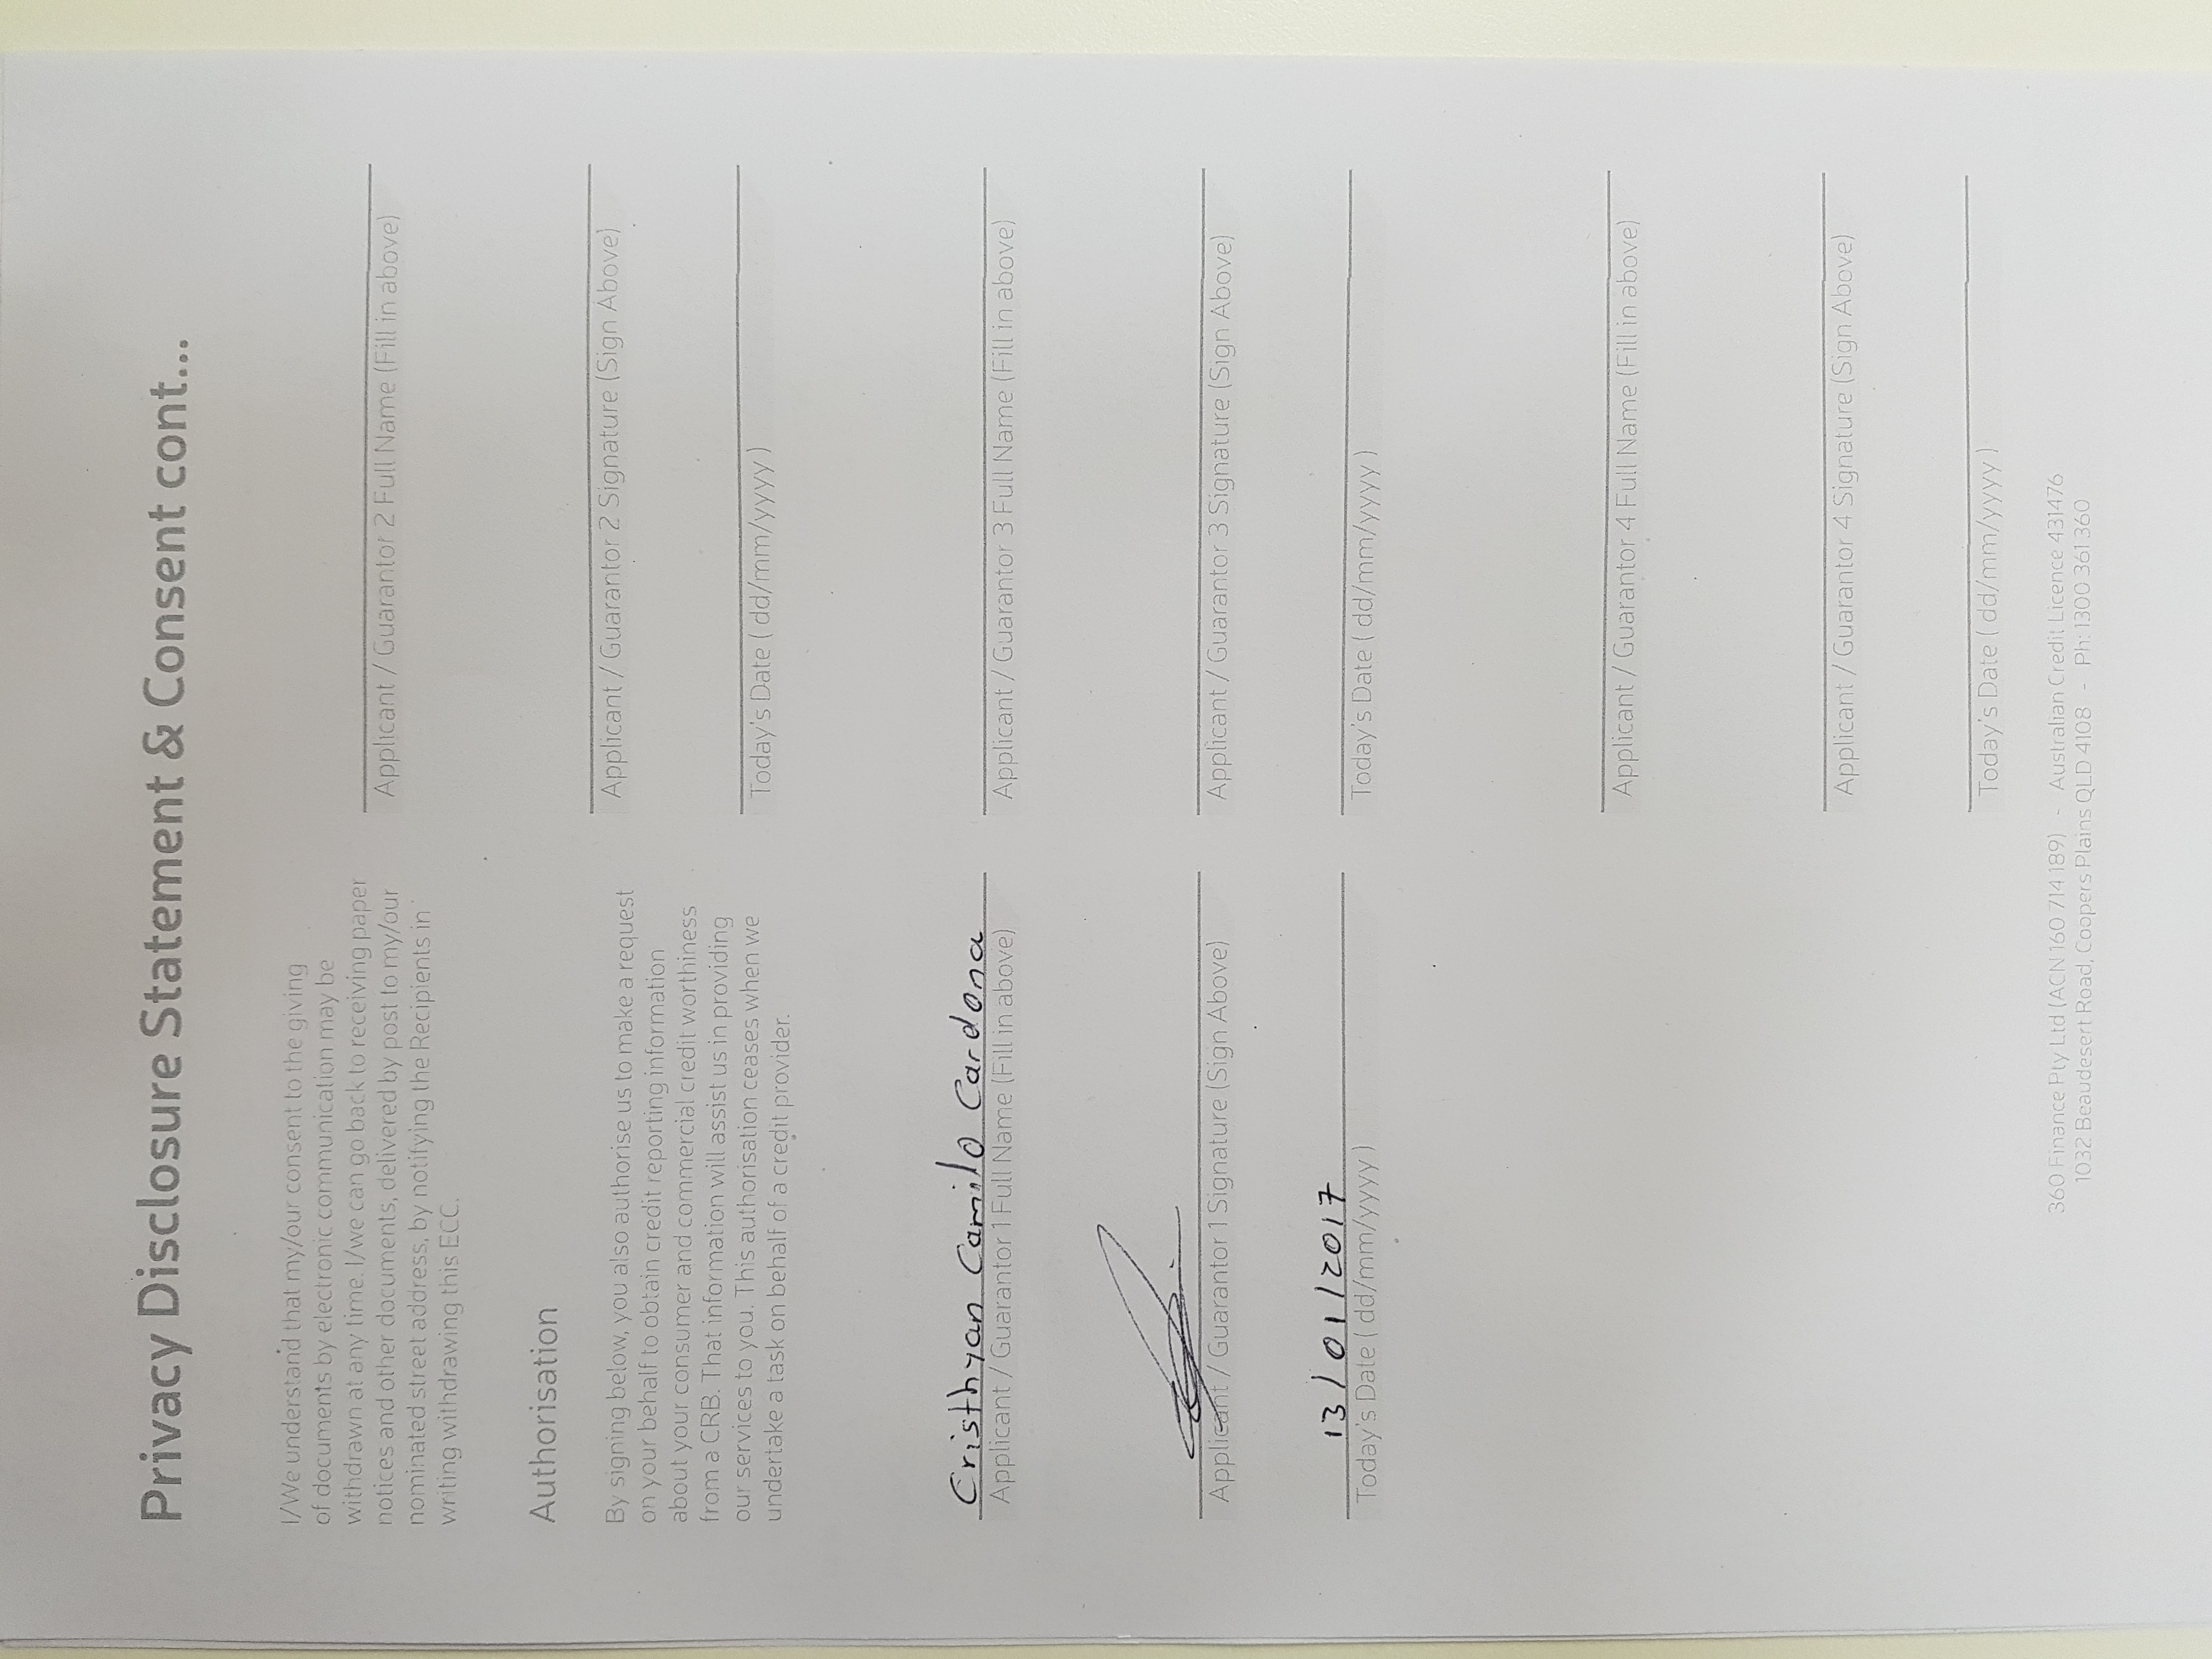 Privacy Disclosure Statement & Consent cont...
I/We understand that my/our consent to the giving
of documents by electronic communication may be
withdrawn at any time. I/we can go back to receiving paper
notices and other documents, delivered by post to my/our
nominated street address, by notifying the Recipients in
writing withdrawing this ECC.
Authorisation
By signing below, you also authorise us to make a request
on your behalf to obtain credit reporting information
about your consumer and commercial credit worthiness
from a CRB. That information will assist us in providing
our services to you. This authorisation ceases when we
undertake a task on behalf of a credit provider.
Cristhyan Camilo Cardona
Applicant / Guarantor 1 Full Name (Fill in above)
Applicant / Guarantor 1 Signature (Sign Above)
13/01/2017
Today's Date ( dd/mm/yyyy )
Applicant / Guarantor 2 Full Name (Fill in above)
Applicant / Guarantor 2 Signature (Sign Above)
Today's Date ( dd/mm/yyyy )
Applicant / Guarantor 3 Full Name (Fill in above)
Applicant / Guarantor 3 Signature (Sign Above)
Today's Date ( dd/mm/yyyy )
Applicant / Guarantor 4 Full Name (Fill in above)
Applicant / Guarantor 4 Signature (Sign Above)
Today's Date ( dd/mm/yyyy )
360 Finance Pty Ltd (ACN 160 714 189) - Australian Credit Licence 431476
1032 Beaudesert Road, Coopers Plains QLD 4108 - Ph: 1300 361 360